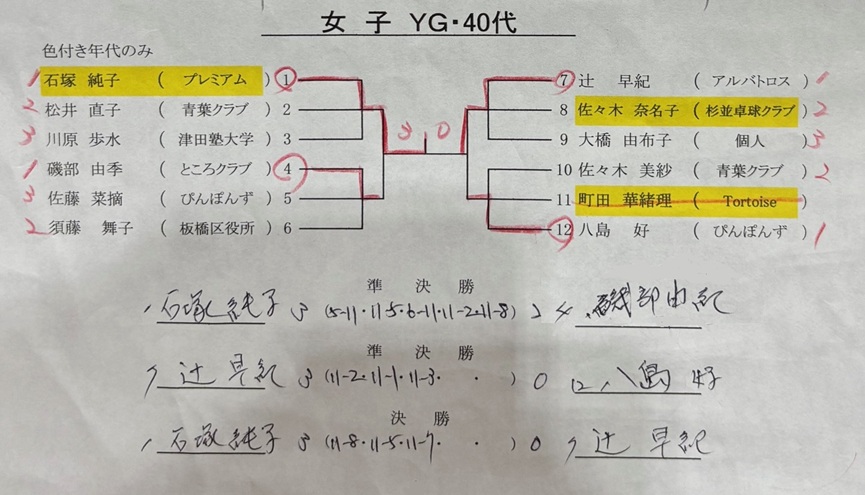 女 子 YG・40代
色付き年代のみ
1 石塚 純子 ( プレミアム ) 1 7 辻 早紀 ( アルバトロス ) 1
2 松井 直子 ( 青葉クラブ ) 2 8 佐々木 奈名子 ( 杉並卓球クラブ ) 2
3 川原 歩水 ( 津田塾大学 ) 3 3 0 9 大橋 由布子 ( 個人 ) 3
1 磯部 由季 ( ところクラブ ) 4 10 佐々木 美紗 ( 青葉クラブ ) 2
3 佐藤 菜摘 ( ぴんぽんず ) 5 11 町田 華緒理 ( Tortoise )
2 須藤 舞子 ( 板橋区役所 ) 6 12 八島 好 ( ぴんぽんず ) 1
準 決 勝
1 石塚純子 3 (5-11・11-5・6-11・11-2・11-8) 2 4 磯部由紀
準 決 勝
7 辻 早紀 3 (11-2・11-1・11-3・ ・ ) 0 12 八島 好
決 勝
1 石塚純子 3 (11-8・11-5・11-7・ ・ ) 0 7 辻 早紀